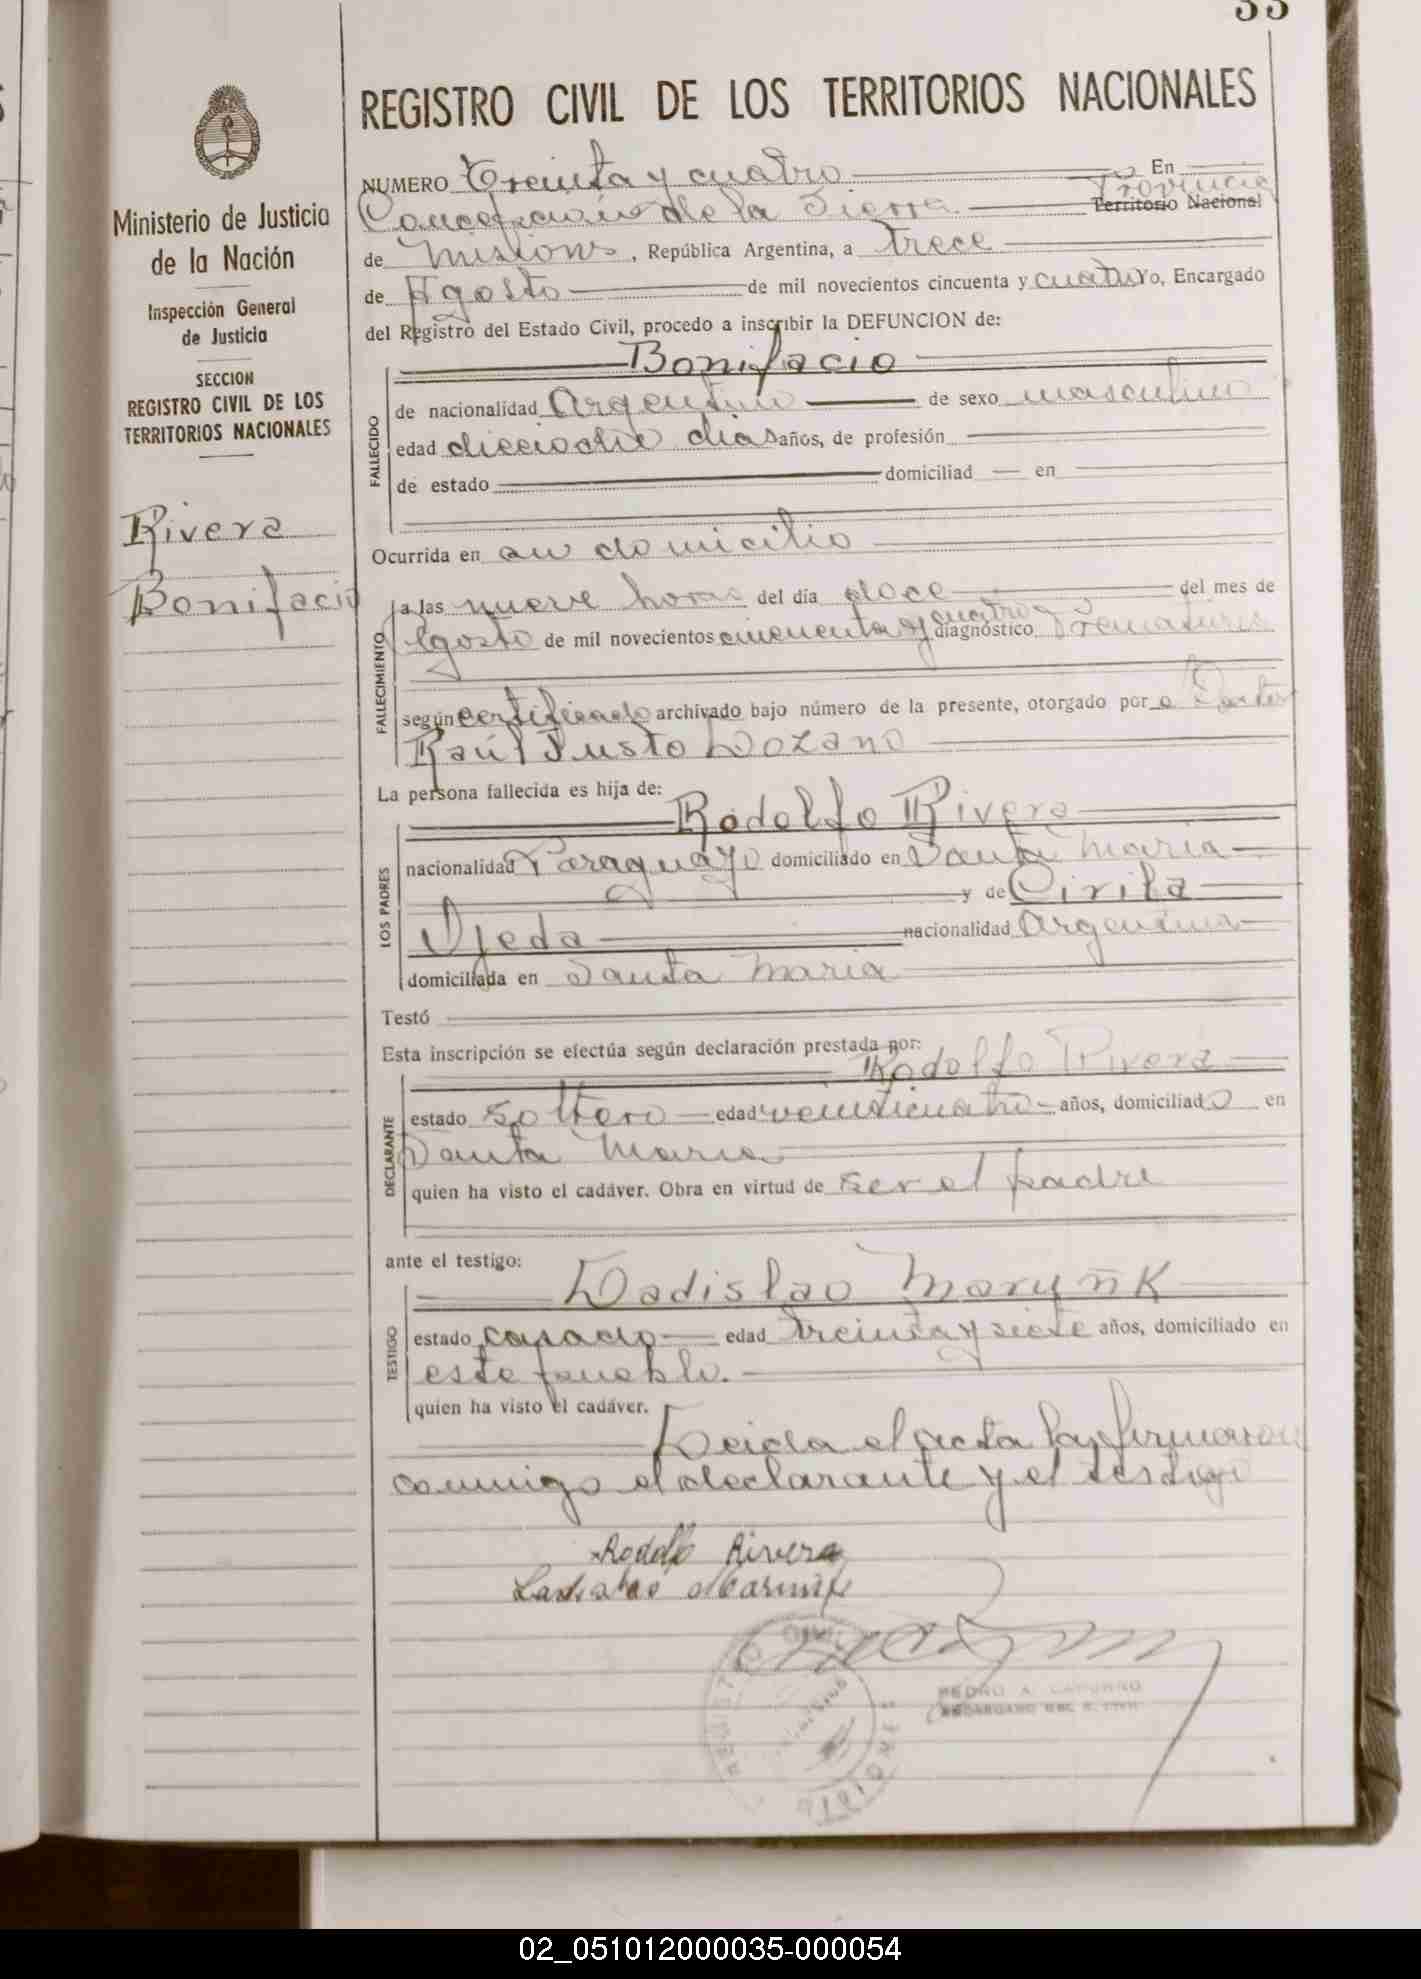 33
REGISTRO CIVIL DE LOS TERRITORIOS NACIONALES
Ministerio de Justicia
de la Nación
Inspección General
de Justicia
SECCION
REGISTRO CIVIL DE LOS
TERRITORIOS NACIONALES
Rivera
Bonifacio
NUMERO Treinta y cuatro En
Concepción de la Sierra Provincia Territorio Nacional
de Misiones, República Argentina, a trece
de Agosto de mil novecientos cincuenta y cuatro Yo, Encargado
del Registro del Estado Civil, procedo a inscribir la DEFUNCION de:
Bonifacio
FALLECIDO
de nacionalidad Argentino de sexo masculino
edad dieciocho dias años, de profesión
de estado domiciliad en
Ocurrida en su domicilio
FALLECIMIENTO
a las nueve horas del día doce del mes de
Agosto de mil novecientos cincuenta y cuatro diagnóstico Prematuro
según certificado archivado bajo número de la presente, otorgado por el Doctor
Raúl Justo Lozano
La persona fallecida es hija de:
LOS PADRES
Rodolfo Rivera
nacionalidad Paraguayo domiciliado en Santa Maria
y de Cirila
Ojeda nacionalidad Argentina
domiciliada en Santa Maria
Testó
Esta inscripción se efectúa según declaración prestada por:
DECLARANTE
Rodolfo Rivera
estado soltero edad veinticuatro años, domiciliado en
Santa Maria
quien ha visto el cadáver. Obra en virtud de ser el padre
ante el testigo:
TESTIGO
Ladislao Maryñk
estado casado edad treinta y siete años, domiciliado en
este pueblo.
quien ha visto el cadáver.
Leida el acta la firmaron
conmigo el declarante y el testigo
Rodolfo Rivera
Ladislao
REGISTRO CIVIL
MISIONES
PEDRO A.
ENCARGADO DEL R. CIVIL
02_051012000035-000054